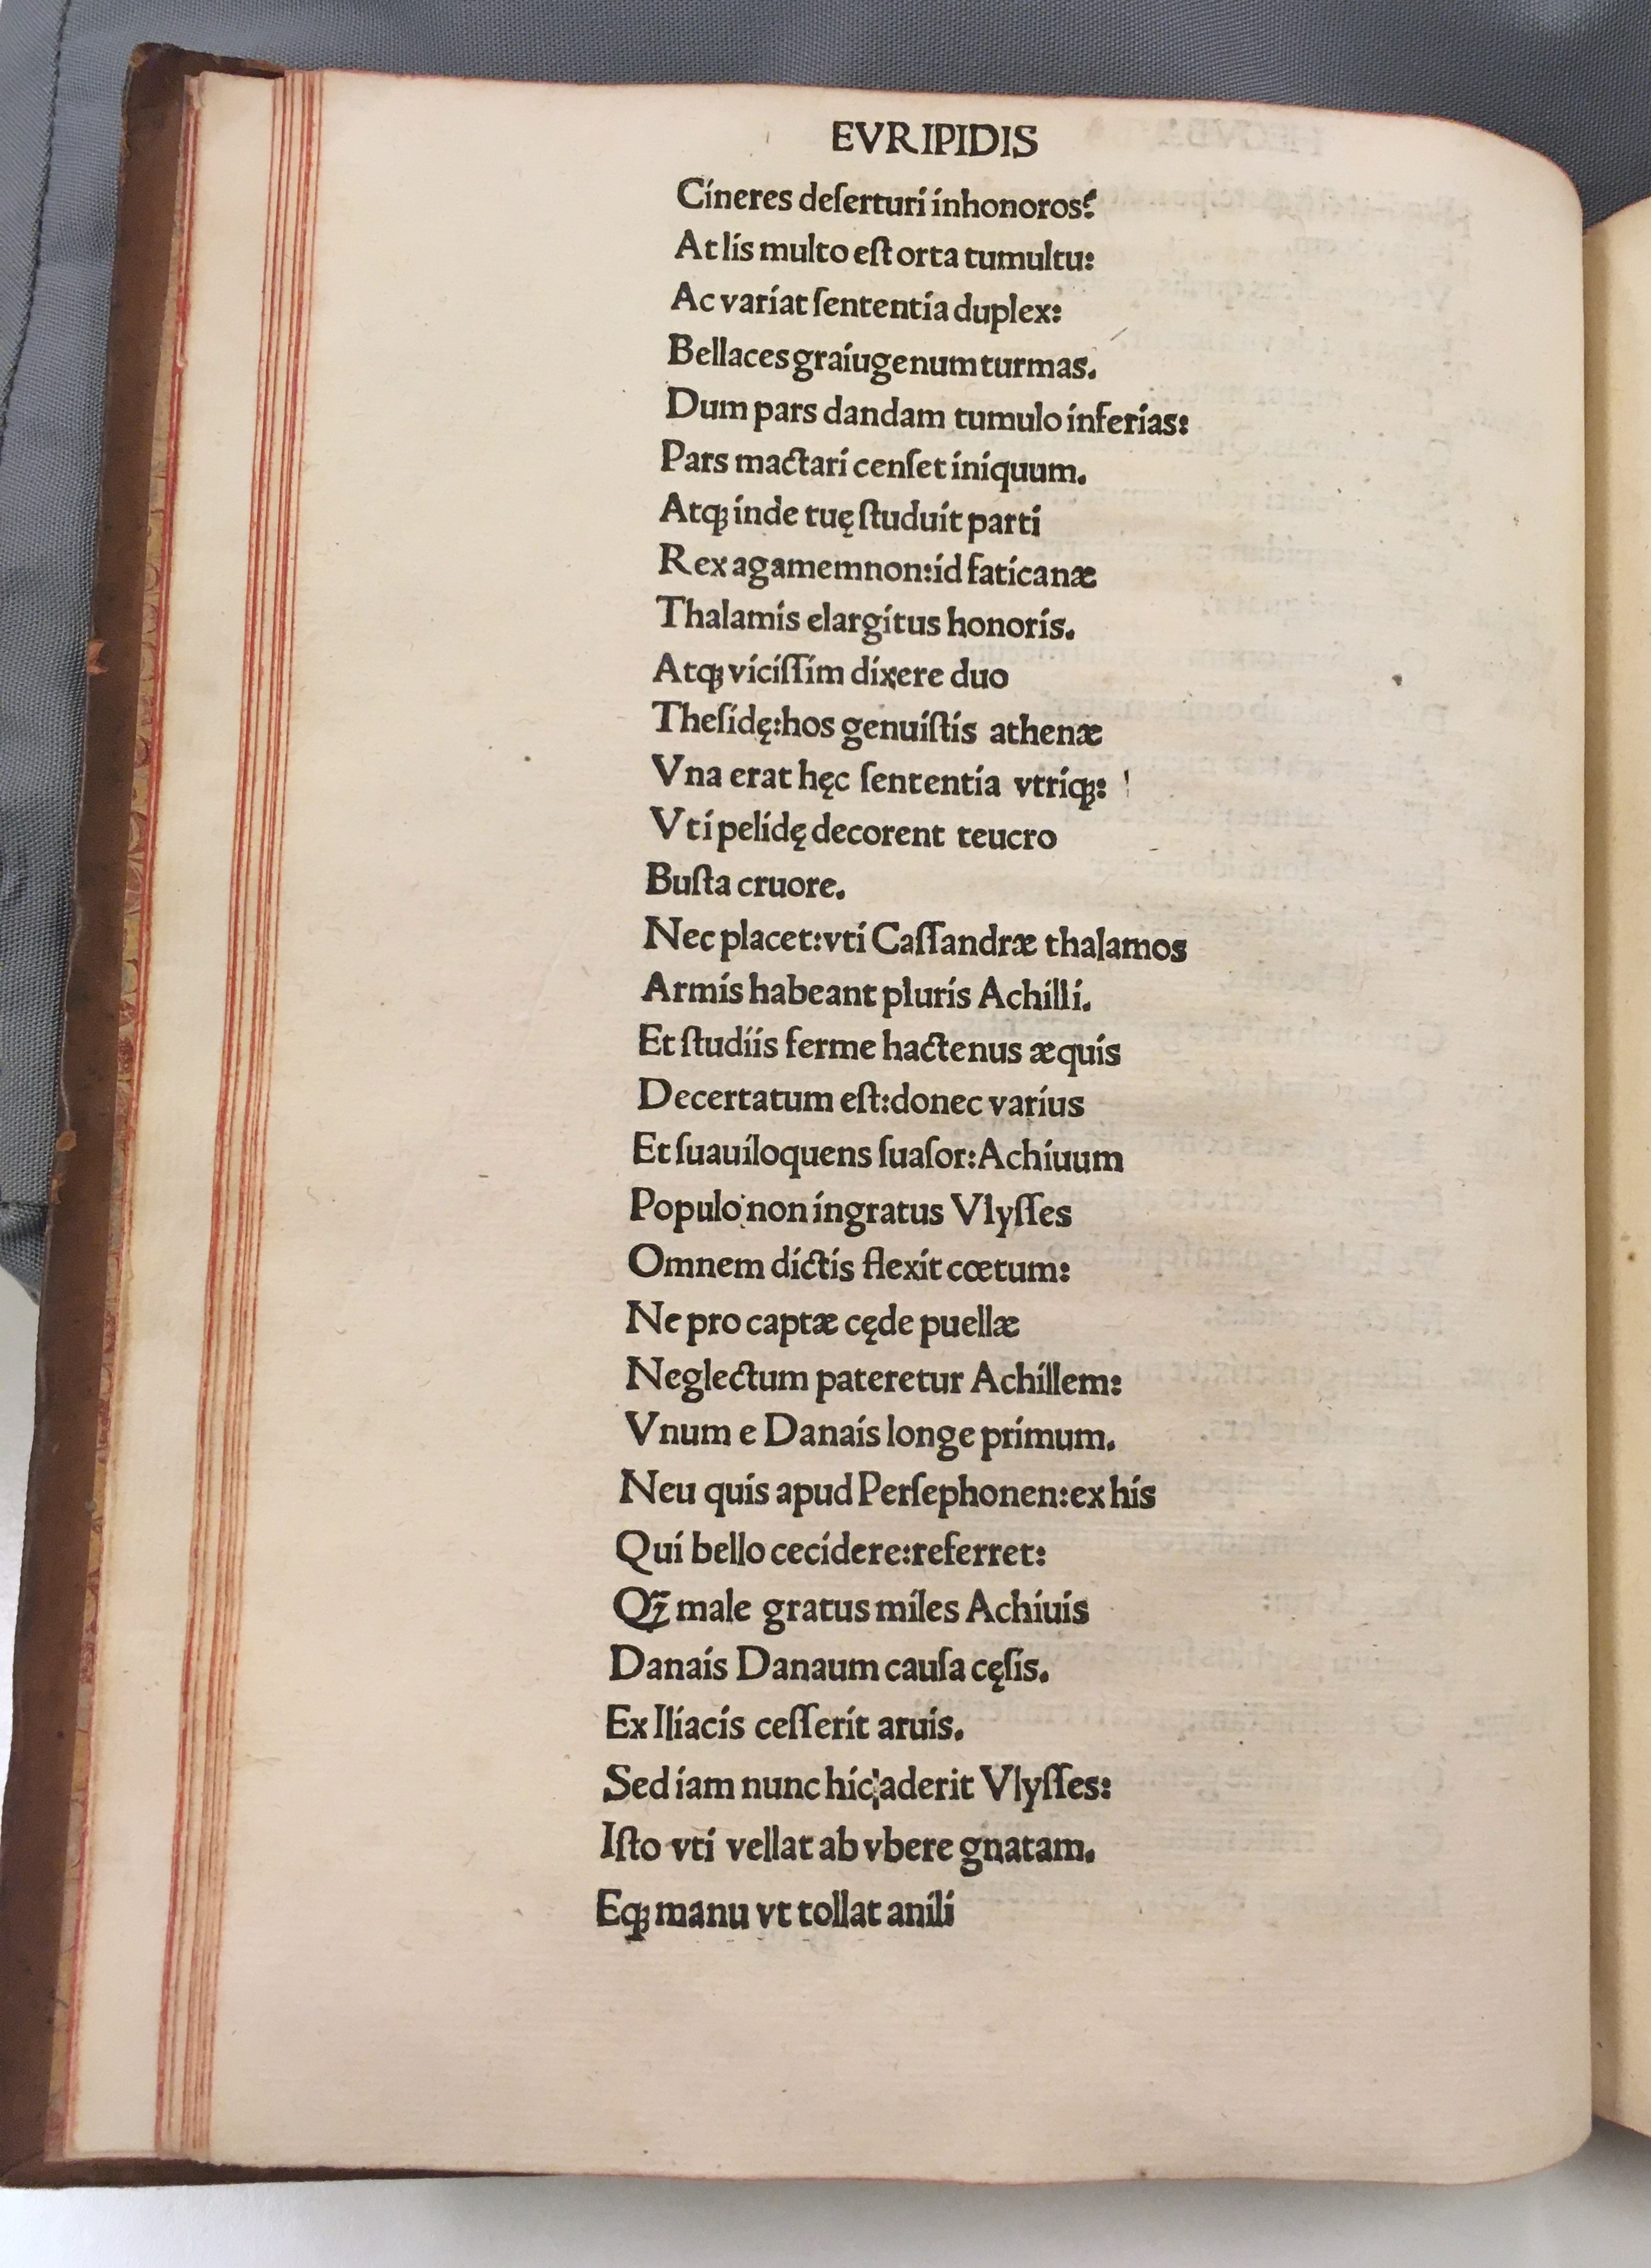 EVRIPIDIS
Cineres deſerturi inhonoros?
At lis multo eſt orta tumultu:
Ac variat ſententia duplex:
Bellaces graiugenum turmas.
Dum pars dandam tumulo inferias:
Pars mactari cenſet iniquum.
Atqꝫ inde tuę ſtuduit parti
Rex agamemnon:id faticanæ
Thalamis elargitus honoris.
Atqꝫ viciſſim dixere duo
Theſidę:hos genuiſtis athenæ
Vna erat hęc ſententia vtriqꝫ:
Vti pelidę decorent teucro
Buſta cruore.
Nec placet:vti Caſſandræ thalamos
Armis habeant pluris Achilli.
Et ſtudiis ferme hactenus æquis
Decertatum eſt:donec varius
Et ſuauiloquens ſuaſor:Achiuum
Populo non ingratus Vlyſſes
Omnem dictis flexit cœtum:
Ne pro captæ cęde puellæ
Neglectum pateretur Achillem:
Vnum e Danais longe primum.
Neu quis apud Perſephonen:ex his
Qui bello cecidere:referret:
Qꝫ̃ male gratus miles Achiuis
Danais Danaum cauſa cęſis.
Ex Iliacis ceſſerit aruis.
Sed iam nunc hic aderit Vlyſſes:
Iſto vti vellat ab vbere gnatam.
Eqꝫ manu vt tollat anili